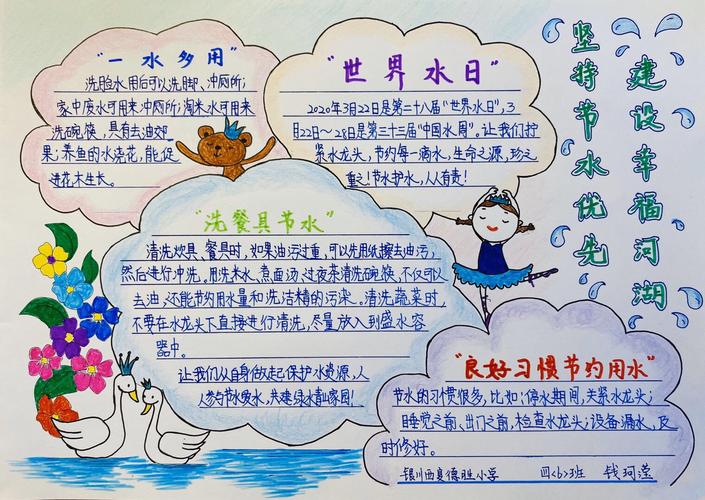 "一水多用"
洗脸水用后可以洗脚、冲厕所;
家中废水可用来冲厕所;淘米水可用来
洗碗筷,具有去油效
果;养鱼的水浇花,能促
进花木生长。
"世界水日"
2020年3月22日是第二十八届"世界水日",3
月22日~28日是第三十三届"中国水周"。让我们拧
紧水龙头,节约每一滴水,生命之源,珍之
重之!节水护水,人人有责!
坚持节水优先
建设幸福河湖
"洗餐具节水"
清洗炊具、餐具时,如果油污过重,可以先用纸擦去油污,
然后进行冲洗。用洗米水、煮面汤、过夜茶清洗碗筷,不仅可以
去油,还能节约用水量和洗洁精的污染。清洗蔬菜时,
不要在水龙头下直接进行清洗,尽量放入到盛水容
器中。
让我们从自身做起保护水资源,人
人参与节水爱水,共建绿水青山家园!
"良好习惯节约用水"
节水的习惯很多,比如:停水期间,关紧水龙头;
睡觉之前、出门之前,检查水龙头;设备漏水,及
时修好。
银川西夏德胜小学 四<6>班 钱珂滢